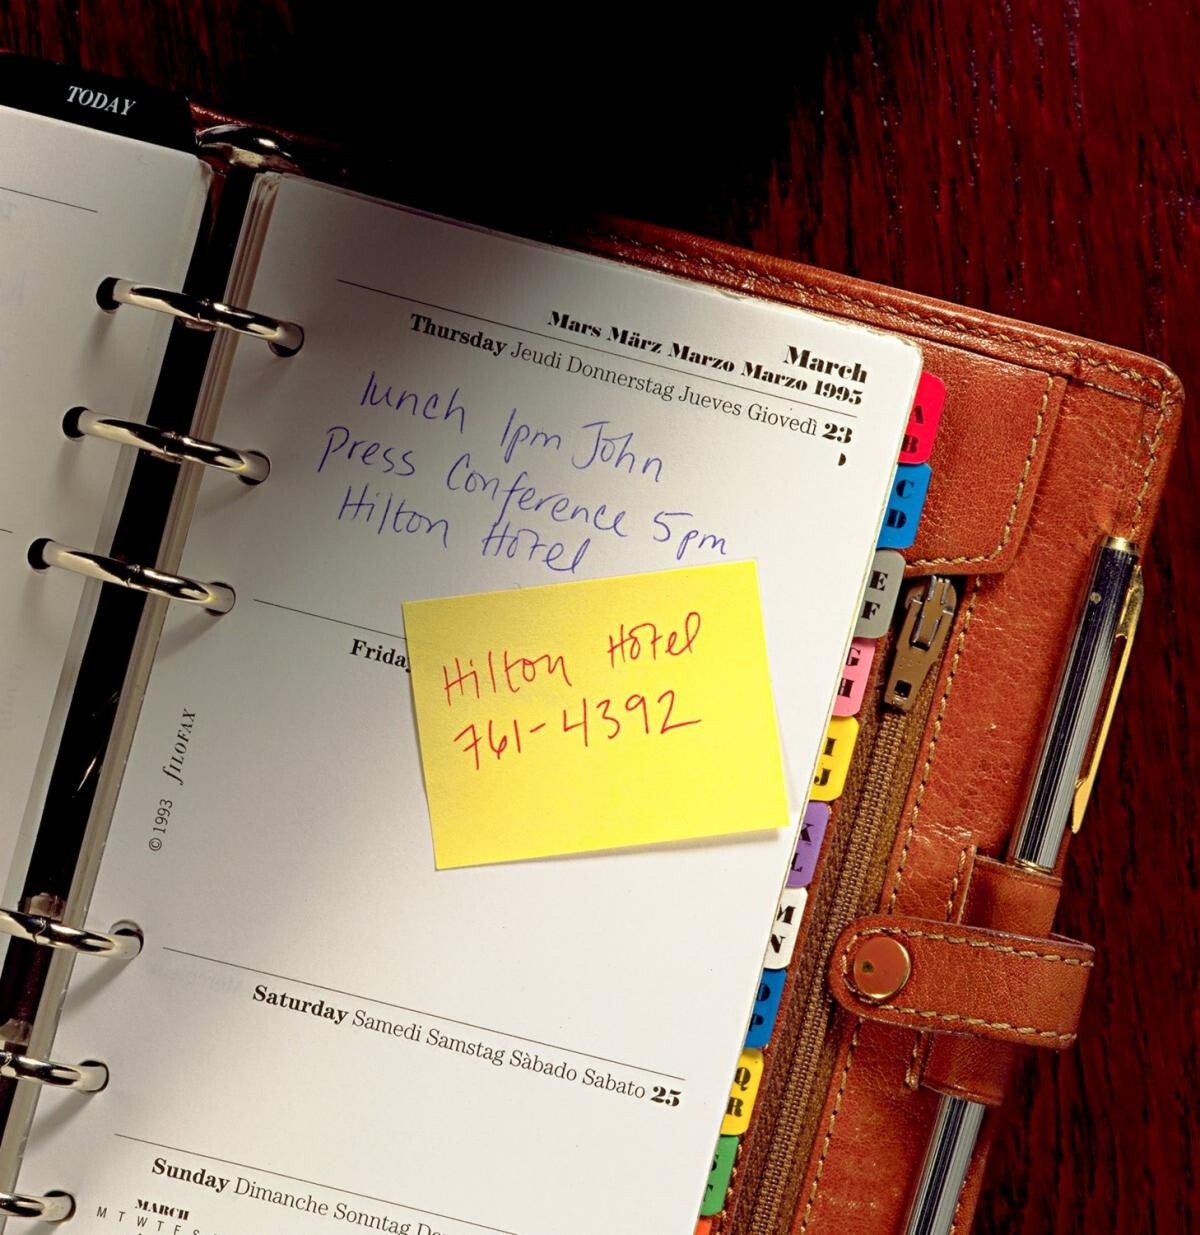 TODAY
March
Mars März Marzo Marzo 1995
Thursday Jeudi Donnerstag Jueves Giovedì 23
lunch 1pm John
Press Conference 5pm
Hilton Hotel
Hilton Hotel
761-4392
© 1993 fILOFAX
Saturday Samedi Samstag Sàbado Sabato 25
Sunday Dimanche Sonntag
MARCH
M T W T F S
A
B
C
D
E
F
G
H
I
J
K
L
M
N
O
P
Q
R